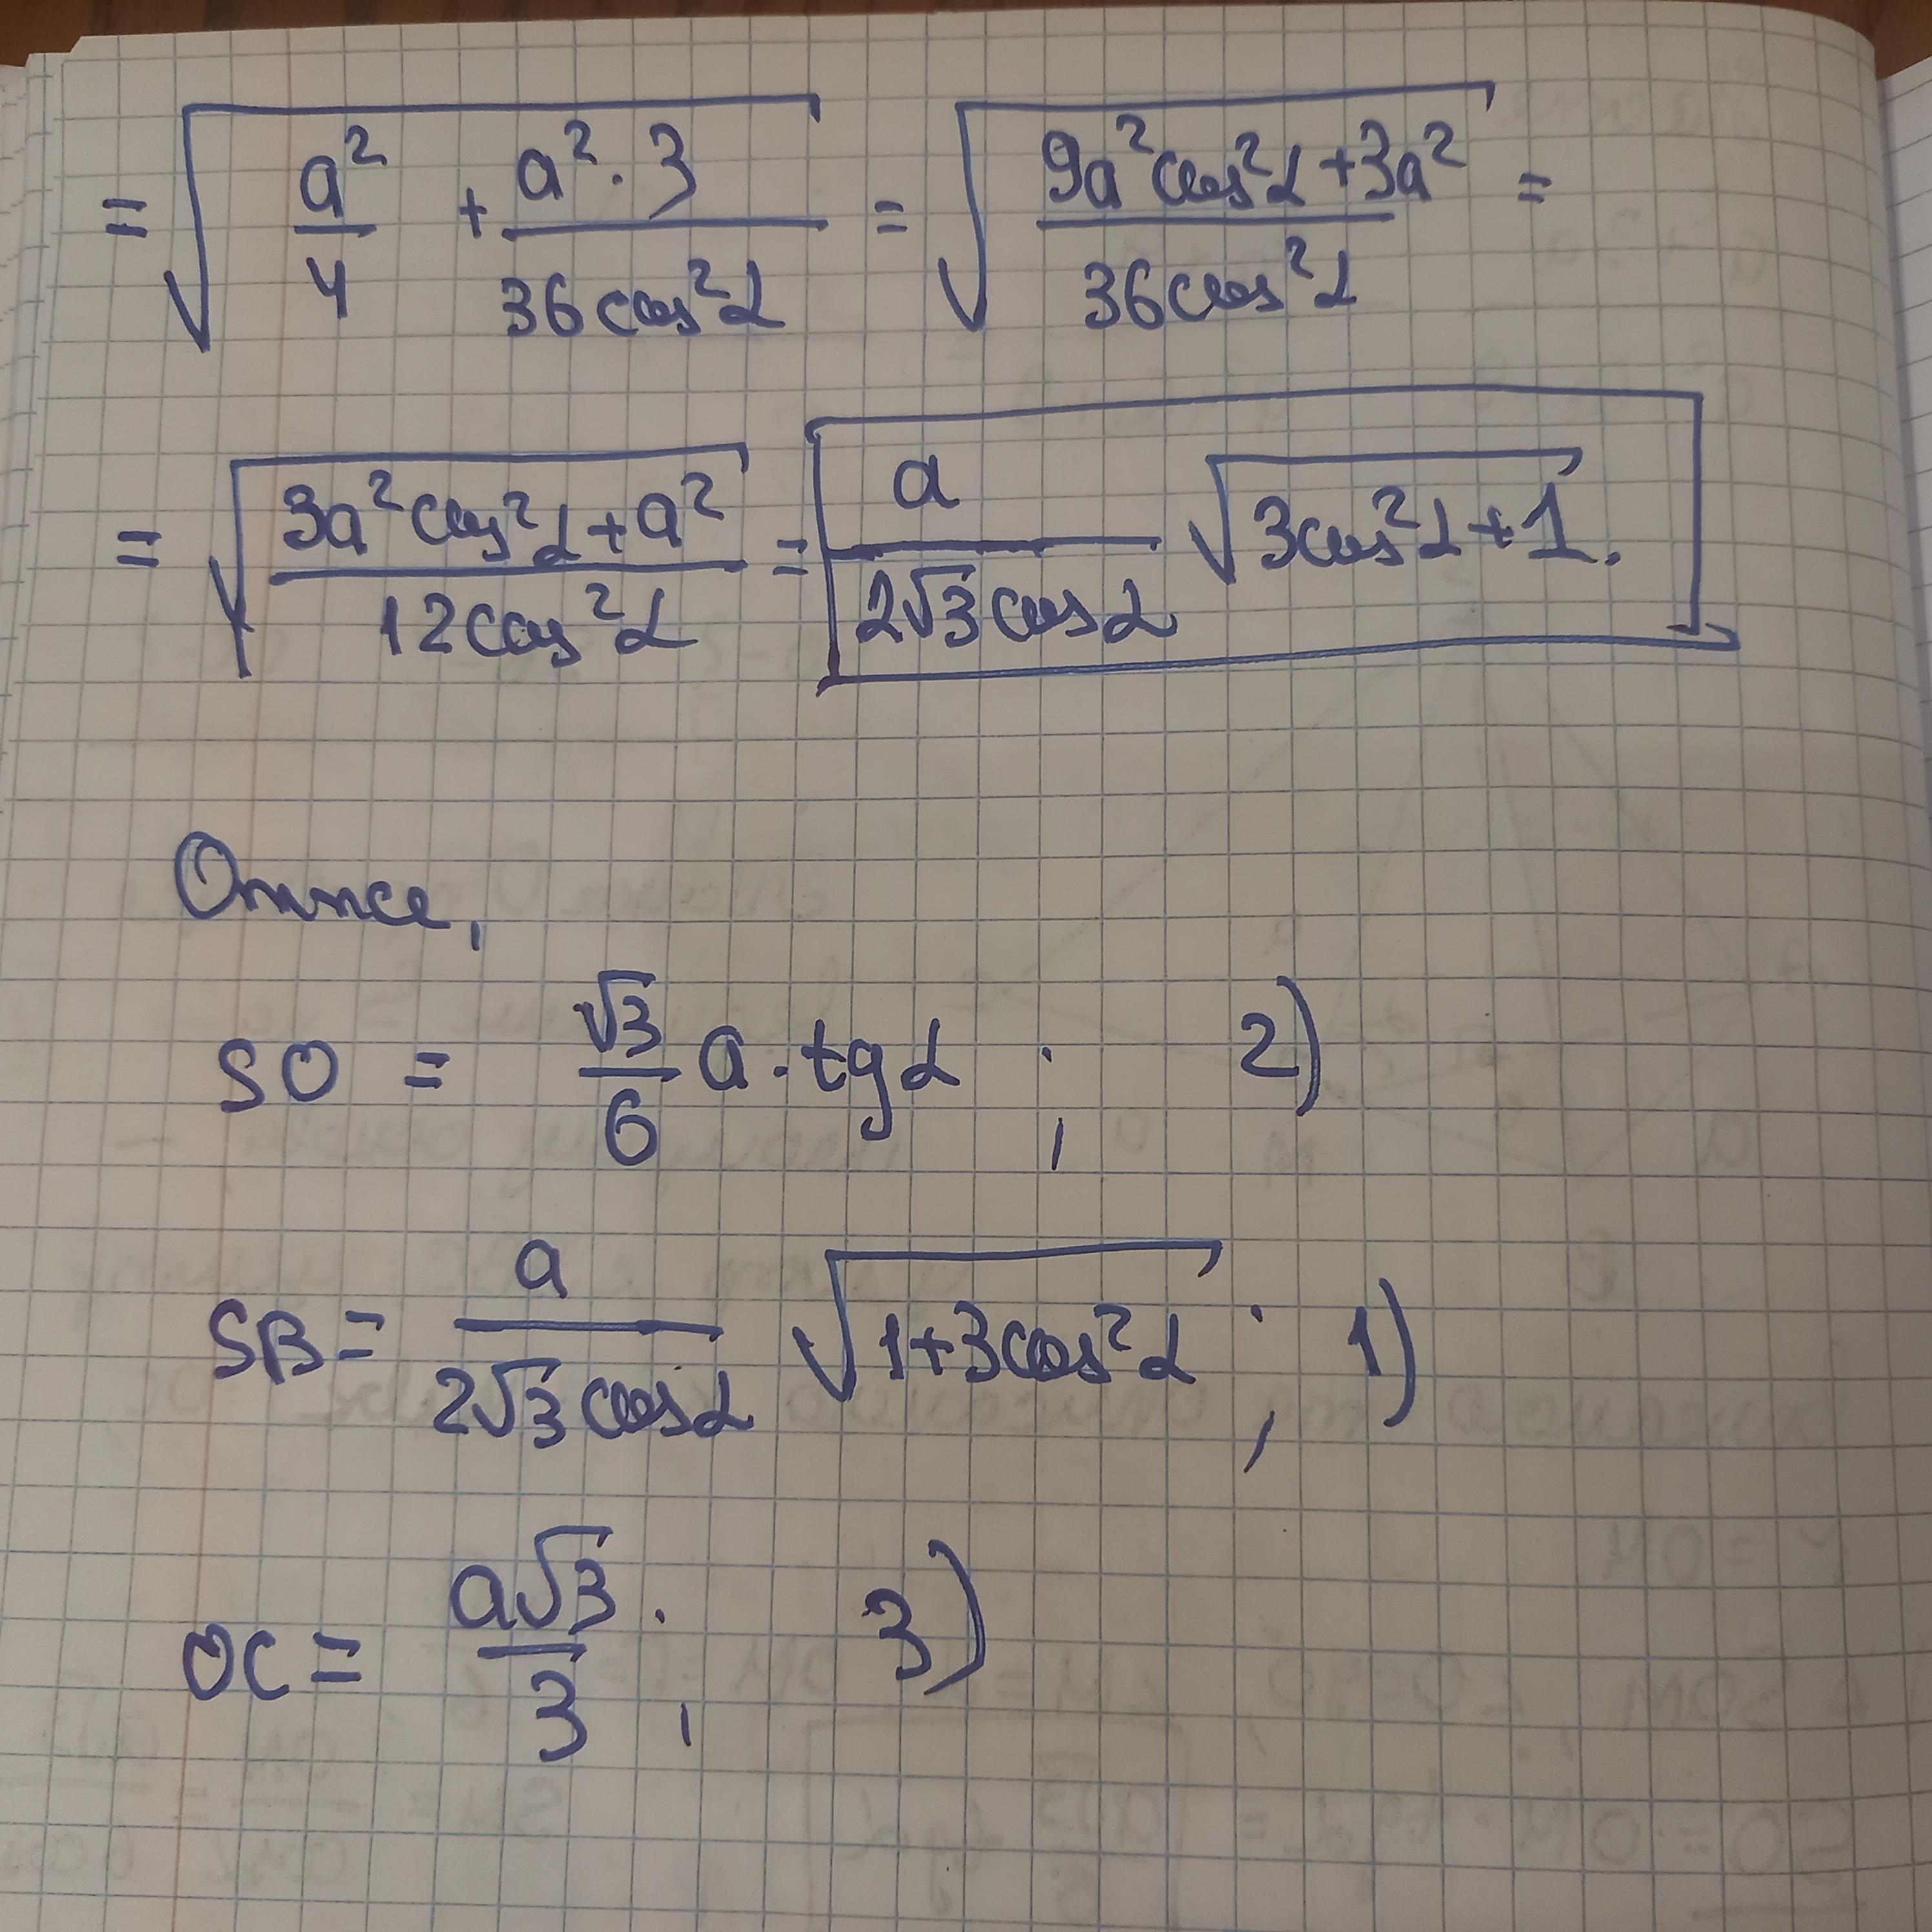 = √(a²/4 + a²·3/36cos²α) = √(9a²cos²α+3a²/36cos²α) =
= √(3a²cos²α+a²/12cos²α) = a/2√3cosα √(3cos²α+1).
Отже,
SO = √3/6 a·tgα ; 2)
SB = a/2√3cosα √(1+3cos²α) ; 1)
OC = a√3/3 ; 3)